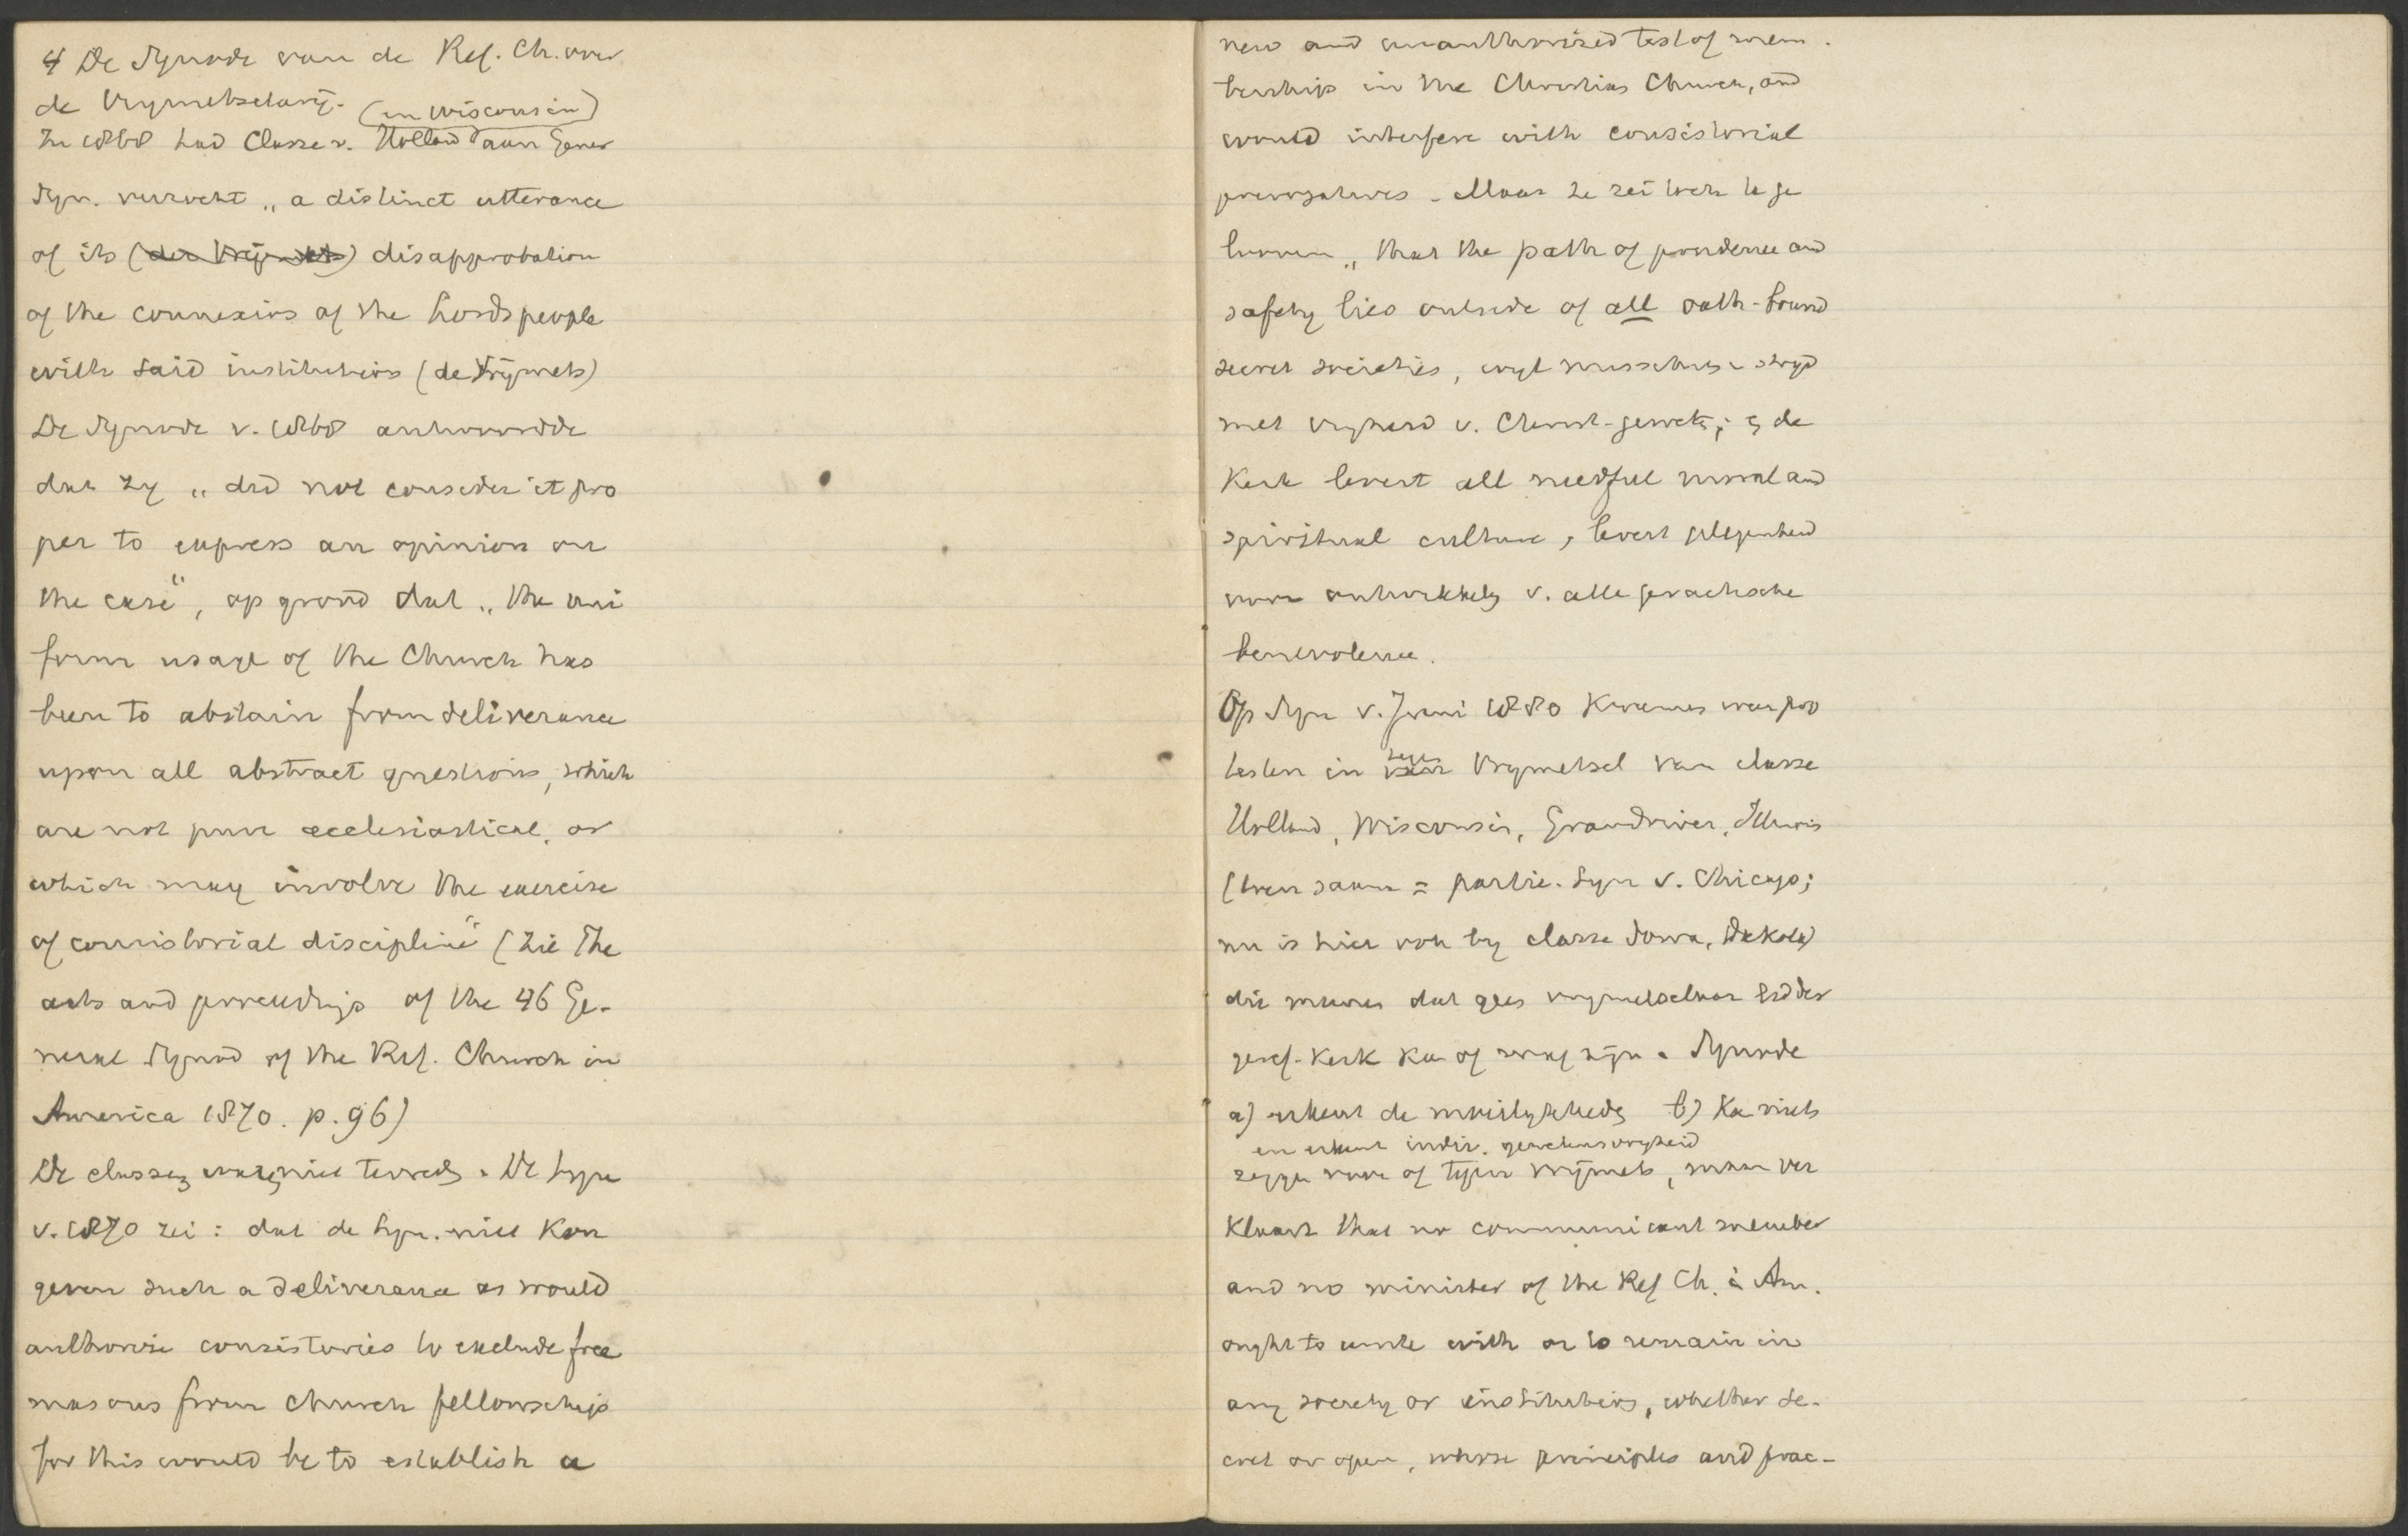 4 De Synode van de Ref. Ch. over
de Vrymetselarij. (en Wisconsin)
In 1868 had Classe v. Holland aan Gener
Syn. verzocht „a distinct utterance
of its (der Vrijmets) disapprobation
of the connexion of the Lords people
with said institution (de Vrijmets)
De Synode v. 1868 antwoordde
dat zy „did not consider it pro
per to express an opinion on
the case", op grond dat „the uni
form usage of the Church has
been to abstain from deliverance
upon all abstract questions, which
are not pure ecclesiastical, or
which may involve the exercise
of consistorial discipline" (zie The
acts and proceedings of the 46 Ge-
neral Synod of the Ref. Church in
America 1870. p. 96)
De classes waren niet tevreden. De Syn
v. 1870 zei: dat de Syn. niet kon
geven such a deliverance as would
authorise consistories to exclude free
masons from church fellowschip
for this would be to establish a
new and unauthorised test of mem-
bership in the Christian Church, and
would interfere with consistorial
prerogatives. Maar ze zei toch te ge
looven „that the path of prudence and
safety lies outside of all oath-bound
secret societies, wyl misschien i. stryd
met vryheid v. Christ-gewet; en de
Kerk levert all needful moral and
spiritual culture, levert gelegenheid
voor ontwikkeling v. alle practische
benevolence.
Op Syn v. Juni 1880 kwamen weer pro
testen in tegen Vrymetsel van classe
Holland, Wisconsin, Grandriver, Illinois
(toen samen = partic. Syn v. Chicago;
nu is hier ook by classe Iowa, Dakota)
die meenen dat geen vrymetselaar lid der
geref. Kerk kan of mag zijn. Synode
a) erkent de moeilykheden b) Kan niets
en erkent indiv. gewetensvryheid
zeggen voor of tegen Vrijmets, maar ver
klaart that no communicant member
and no minister of the Ref Ch. in Am.
ought to unite with or to remain in
any society or institution, whether se-
cret or open, whose principles and prac-